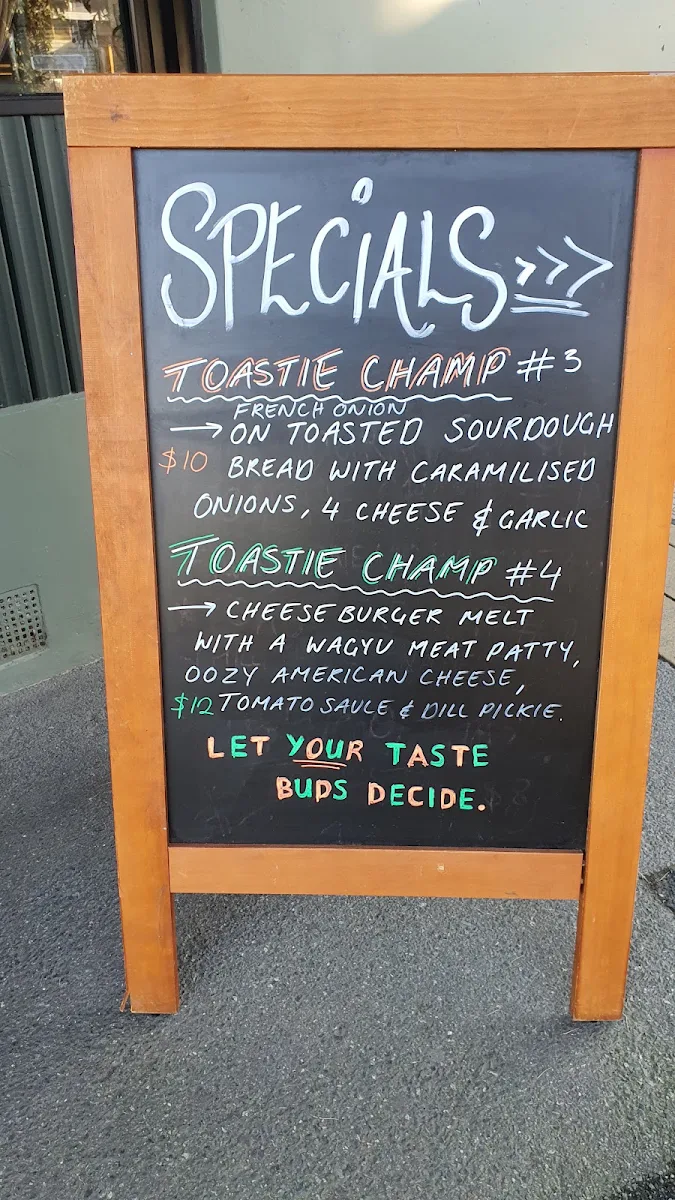 SPECIALS >>>
TOASTIE CHAMP #3
FRENCH ONION
→ ON TOASTED SOURDOUGH
$10 BREAD WITH CARAMILISED
ONIONS, 4 CHEESE & GARLIC
TOASTIE CHAMP #4
→ CHEESEBURGER MELT
WITH A WAGYU MEAT PATTY,
OOZY AMERICAN CHEESE,
$12 TOMATO SAUCE & DILL PICKIE.
LET YOUR TASTE
BUDS DECIDE.